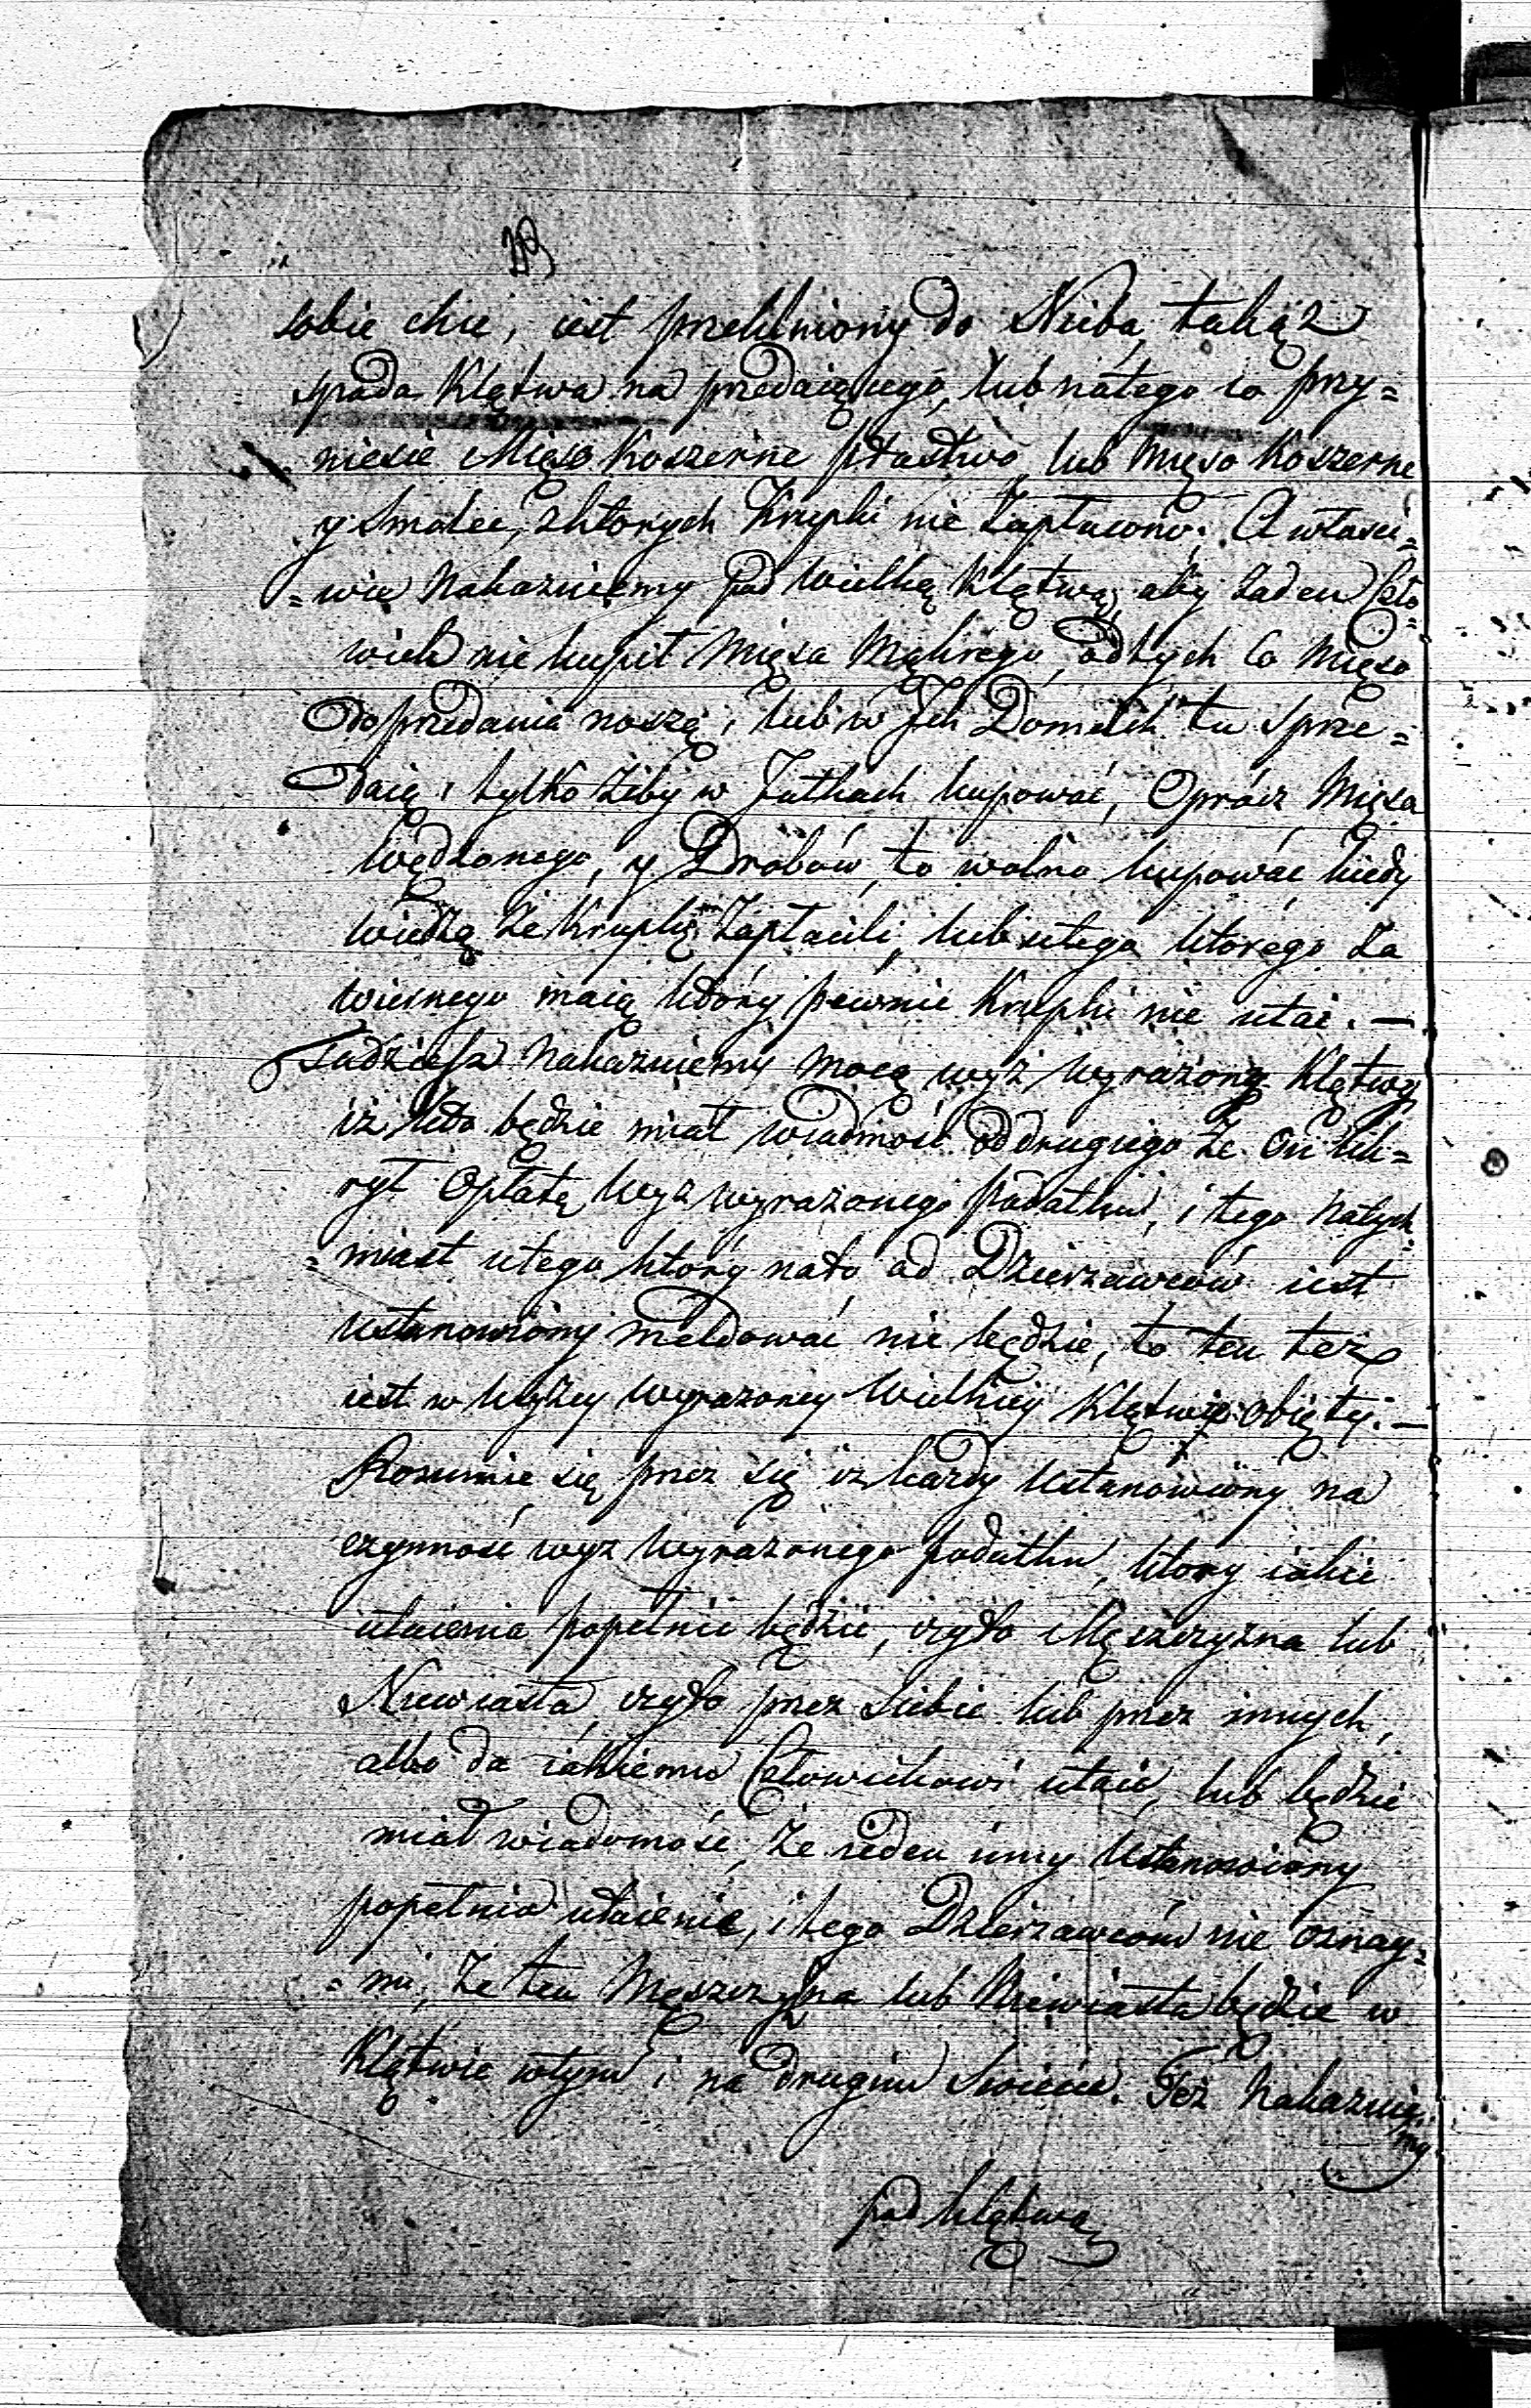 sobie chce, iest przeklniony do Nieba, takąż
spada Klątwa na przedaiącego, lub natego co przy=
niesie Mięso Koszerne ptastwo, lub Mięso Koszerne
y Smalec, zktorych Krupki nie Zapłacono. A własci=
=wie Nakazuiemy pod wielką Klątwą, aby żaden Cżło=
wiek nie kupił Mięsa Mąkrego, odtych Co Mięso
do przedania noszą, lub w Jch Domach tu sprze=
daią, tylko żeby w Jatkach kupować, Oprócz Mięsa
Wędzonego, y Drobów, to wolno kupować kiedy
wiedzą że Krupkę Zapłacili, lub utego ktorego za
wiernego maią który pewnie Krupki nie utai. —
Tudziesz Nakazuiemy mocą wyż wyrażoną Klątwy
iż kto będzie miał wiadmość oddrugiego że On uk=
rył Opłatę wyż wyrażonego podatku, i tego Natych=
=miast utego ktory nato od Dzierzawców iest
ustanowiony meldować nie będzie, to ten też
iest w wyżey wyrażoney Wielkiey Klątwie obięty. —
Rozumie się przez się iż każdy Ustanowiony na
czynność wyż wyrażonego podatku, ktory iakie
utaienia popełnić będzie, czyto Męszczyzna lub
Niewiasta, czyto przez siebie lub przez innych,
albo da iakiemu Człowiekowi utaić, lub będzie
miał wiadomość, że ieden inny Ustanowiony
popełnia utaienie, i tego Dzierzawcom nie oznay=
=mi, że ten Męszczyzna lub Niewiasta będzie w
Klątwie wtym i na drugim Swiecie. Też Nakazuię=
my
pod klątwą